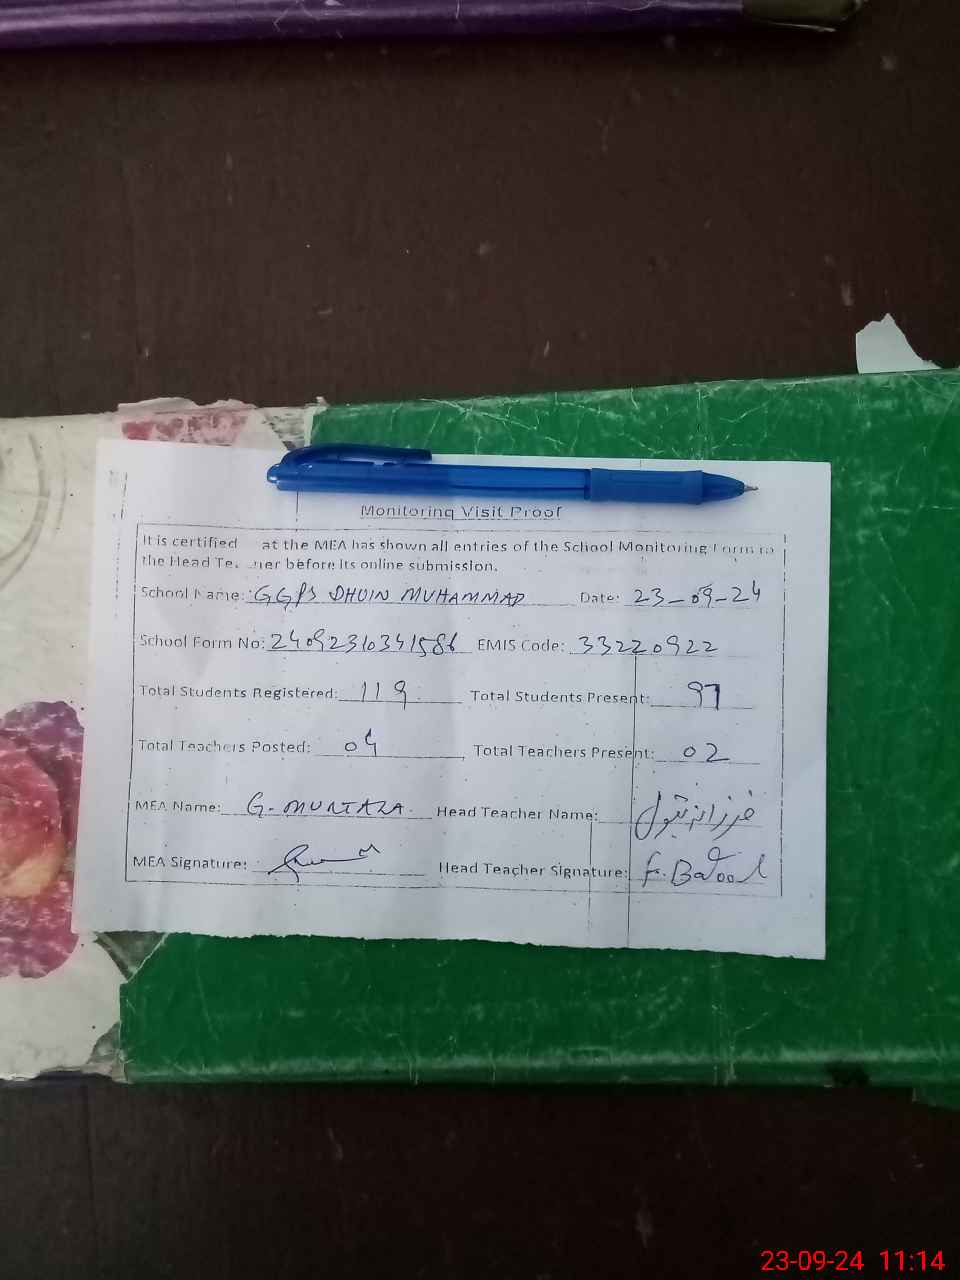 Monitoring Visit Proof
It is certified at the MEA has shown all entries of the School Monitoring Form to
the Head Te. her before its online submission.
School Name: GGPS DHUIN MUHAMMAD Date: 23-09-24
School Form No: 24092310341586 EMIS Code: 33220922
Total Students Registered: 119 Total Students Present: 97
Total Teachers Posted: 04 Total Teachers Present: 02
MEA Name: G. MURTAZA. Head Teacher Name: فرزانہ بتول
MEA Signature: Head Teacher Signature: F. Batool
23-09-24 11:14